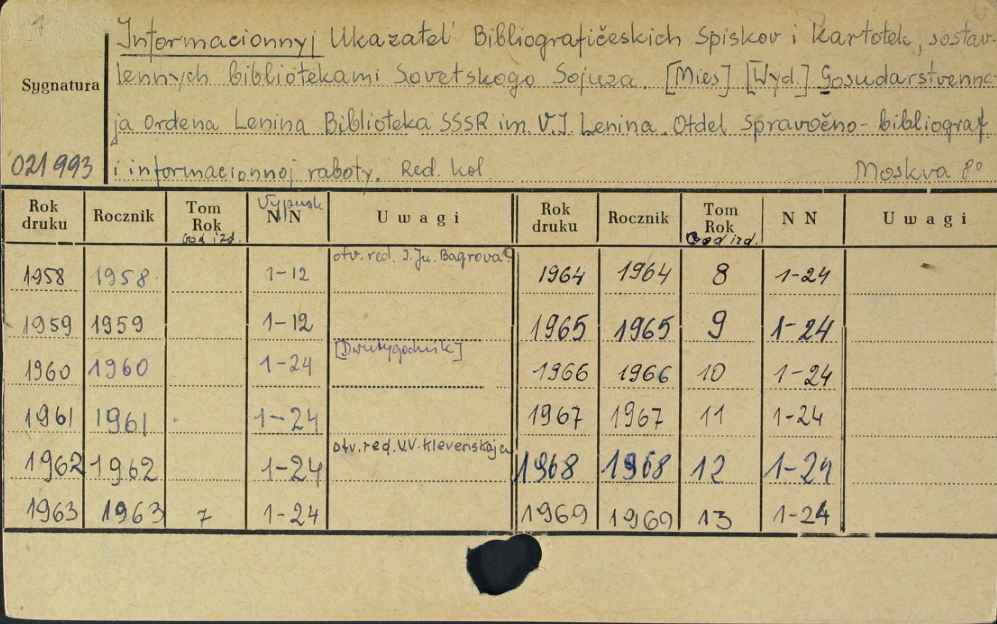 Informacionnyj Ukazatel' Bibliografičeskich Spiskov i Kartotek, sostav-
Sygnatura lennych bibliotekami Sovetskogo Sojuza. [Mies] [Wyd.] Gosudarstvenna-
ja ordena Lenina Biblioteka SSSR im. V.I. Lenina. Otdel spravočno-bibliograf
021993 i informacionnoj raboty. Red. kol. Moskva 8°
Rok druku Rocznik Tom Rok God izd. Vypusk NN Uwagi Rok druku Rocznik Tom Rok God izd. NN Uwagi
1958 1958 1-12 otv. red. I. Ju. Bagrova 1964 1964 8 1-24
1959 1959 1-12 1965 1965 9 1-24
1960 1960 1-24 [Dwutygodnik] 1966 1966 10 1-24
1961 1961 1-24 1967 1967 11 1-24
1962 1962 1-24 otv. red. V.V. Klevenskaja 1968 1968 12 1-24
1963 1963 7 1-24 1969 1969 13 1-24